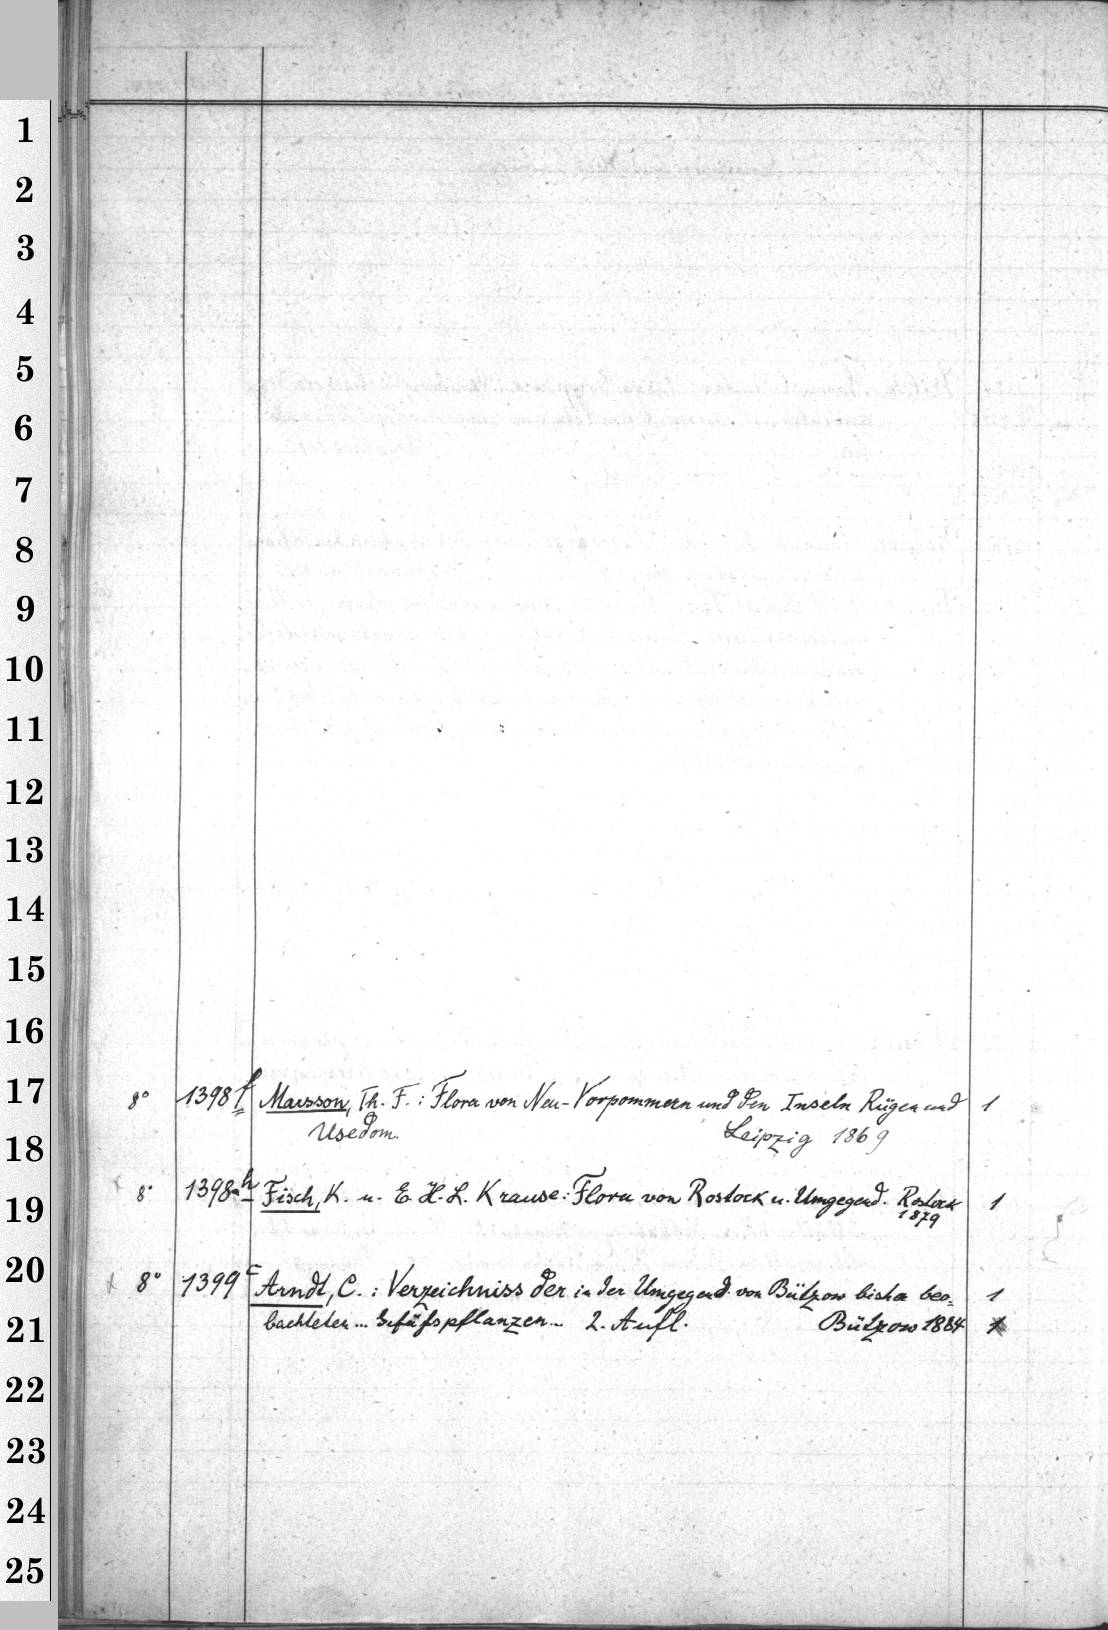 1
2
3
4
5
6
7
8
9
10
11
12
13
14
15
16
17
18
19
20
21
22
23
24
25
8° 1398 f Marsson, Th. F.: Flora von Neu-Vorpommern und den Inseln Rügen und 1
Usedom. Leipzig 1869
8° 1398 h Fisch, K. u. E. H. L. Krause: Flora von Rostock u. Umgegend. Rostock 1
1879
8° 1399 c Arndt, C.: Verzeichniss der in der Umgegend von Bützow bisher beo- 1
bachteten ... Gefäßspflanzen ... 2. Aufl. Bützow 1884 1